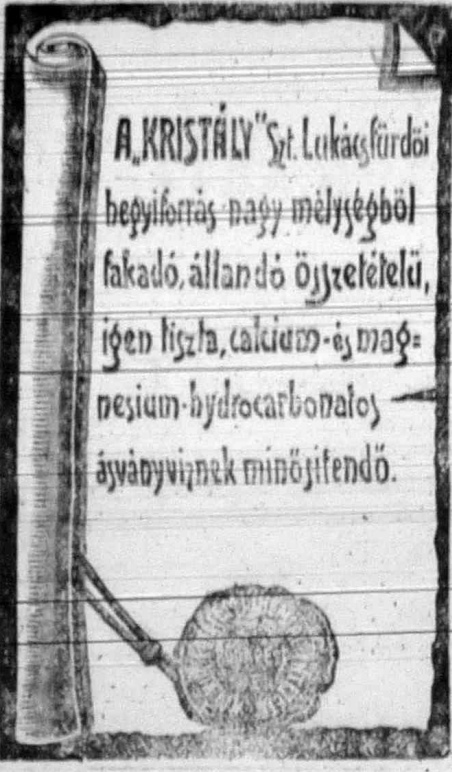 A „KRISTÁLY" Szt. Lukácsfürdői
hegyiforrás nagy mélységből
fakadó, állandó összetételű,
igen tiszta, calcium- és mag=
nesium-hydrocarbonatos
ásványviznek minősitendő.